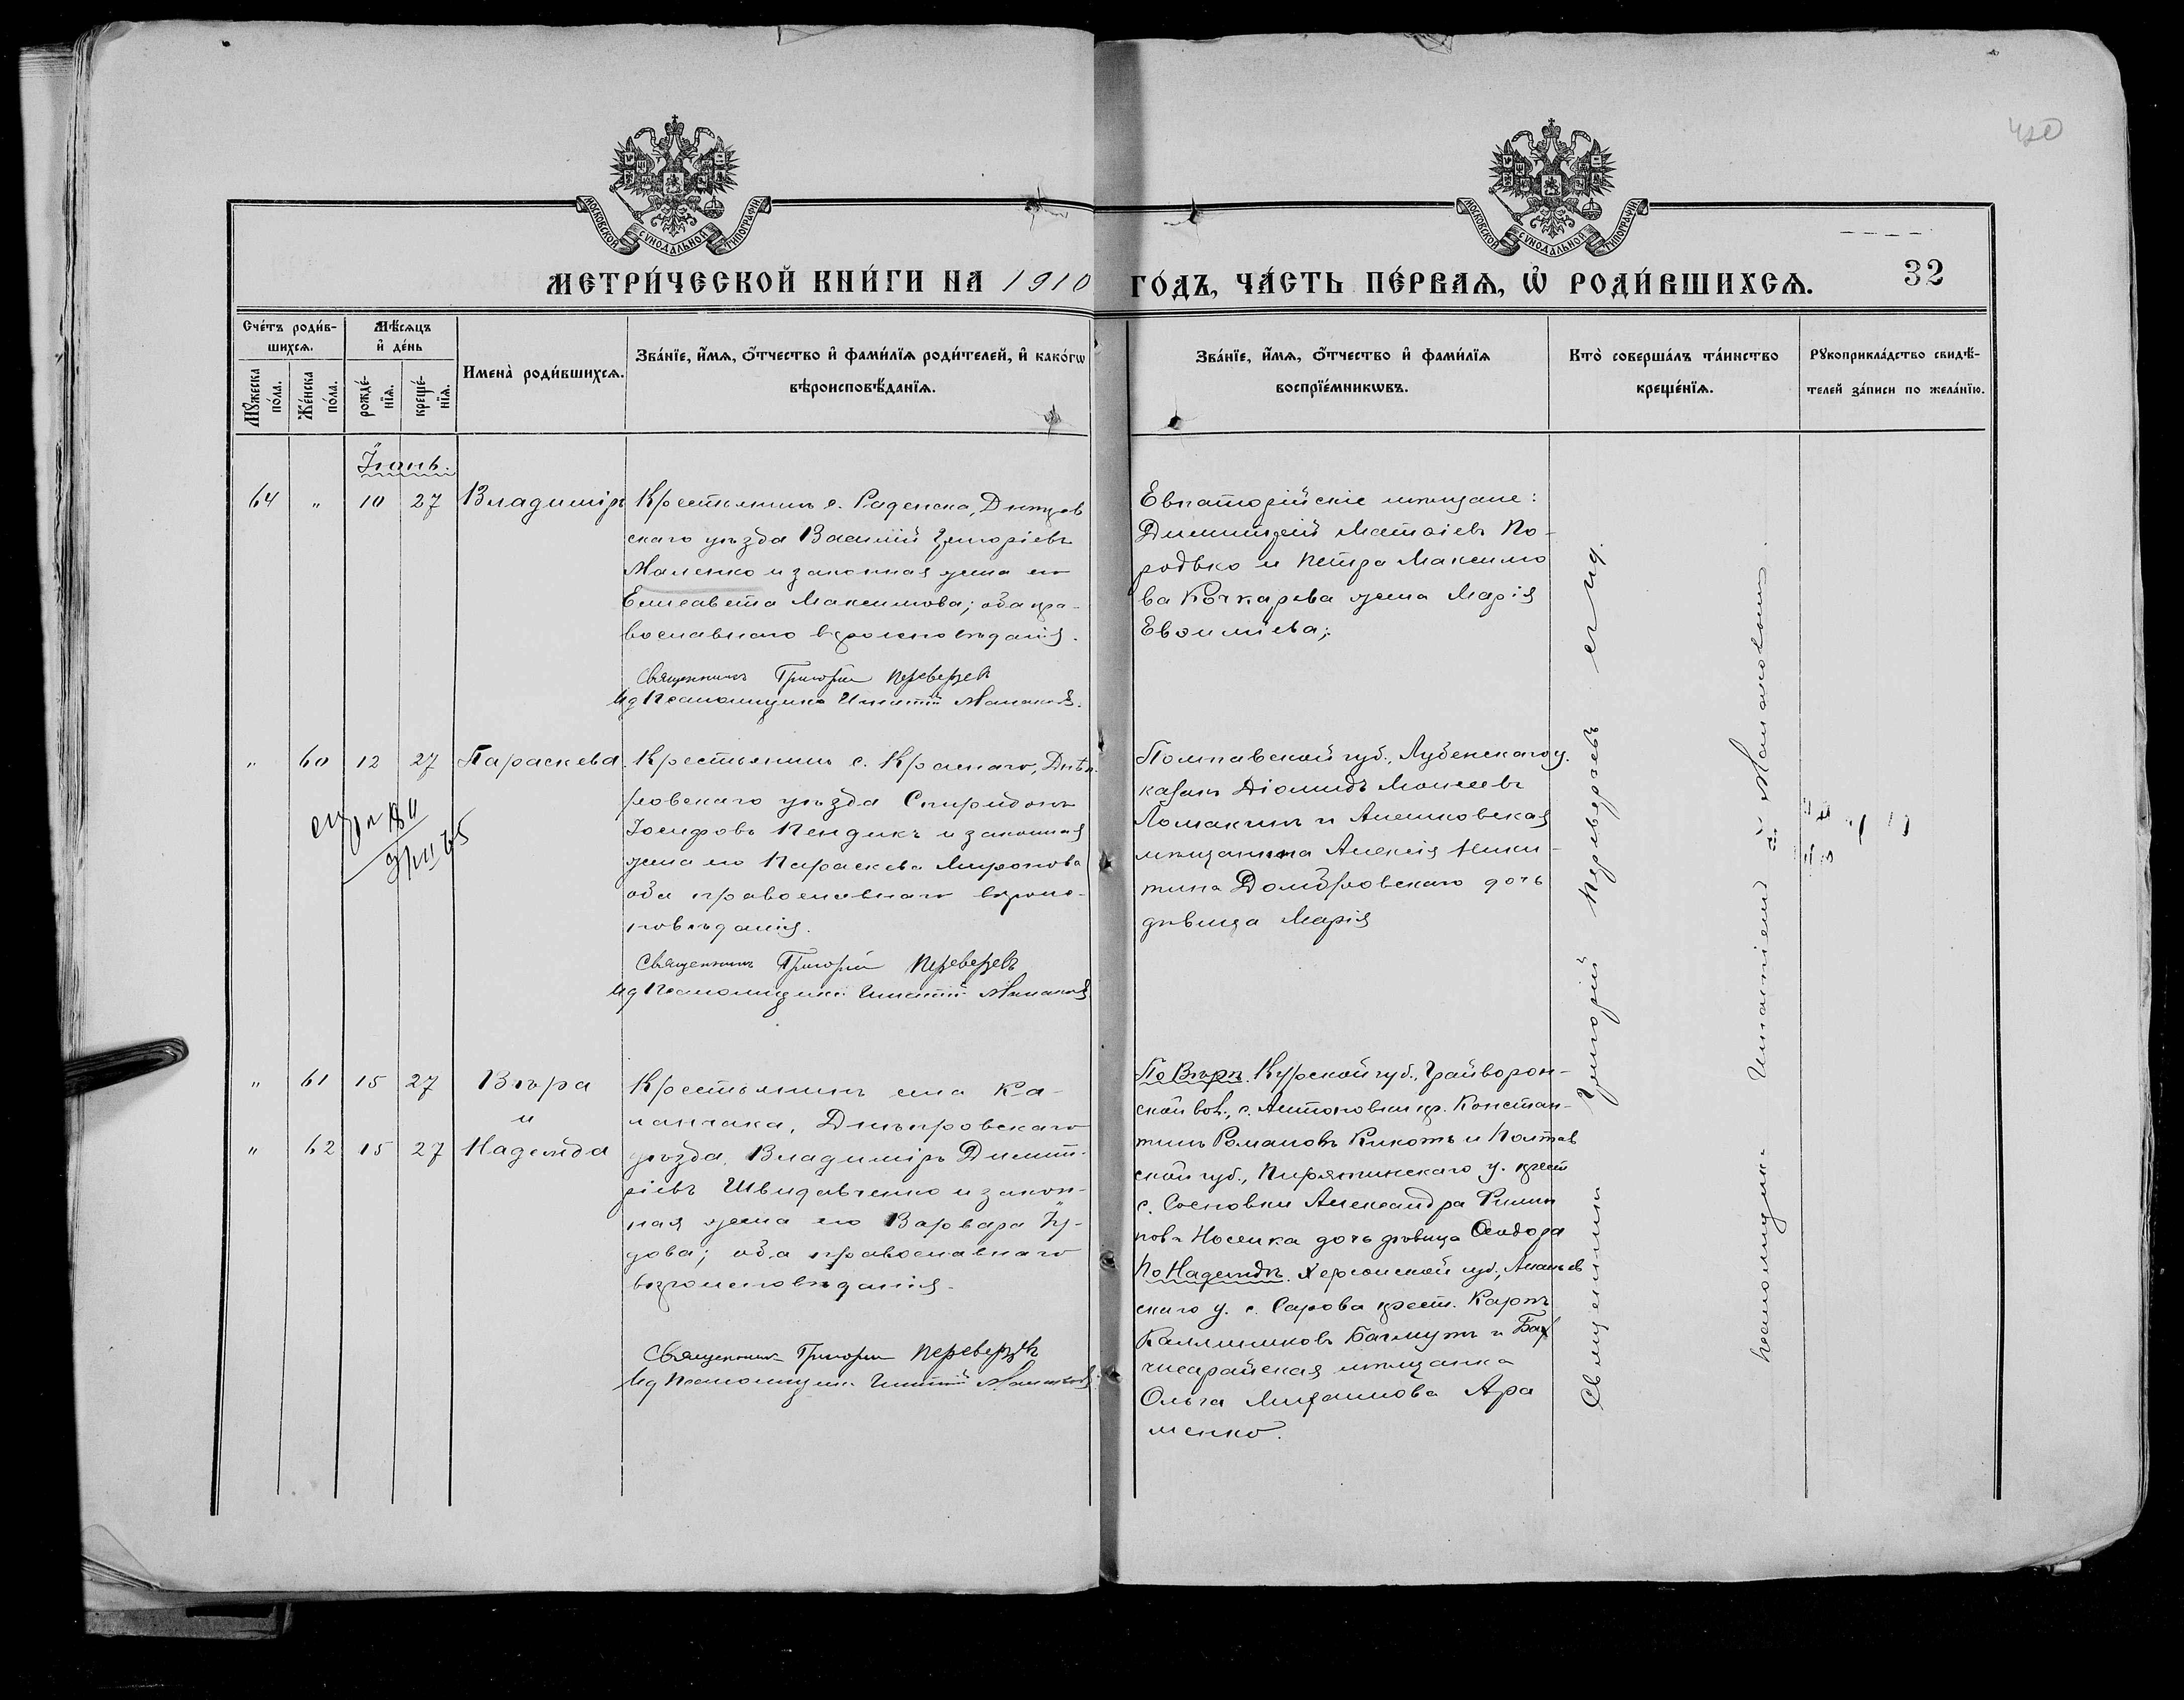 420
МОСКОВСКОЙ СѴНОДАЛЬНОЙ ТИПОГРАФІИ
МОСКОВСКОЙ СѴНОДАЛЬНОЙ ТИПОГРАФІИ
МЕТРИ́ЧЕСКОЙ КНИ́ГИ НА 1910 ГО́ДЪ, ЧА́СТЬ ПЕ́РВАѦ, Ѽ РОДИ́ВШИХСѦ. 32
Сче́тъ роди́в-
шихсѧ.
Мꙋ́жеска по́ла.
Же́нска по́ла.
Мѣ́сѧцъ
и҆ де́нь
рожде́-
нїѧ.
креще́-
нїѧ.
Имена̀ роди́вшихсѧ.
Зва́нїе, и҆́мѧ, ѻ҆́тчество и҆ фами́лїѧ роди́телей, и҆ како́гѡ
вѣроисповѣ́данїѧ.
Зва́нїе, и҆́мѧ, ѻ҆́тчество и҆ фами́лїѧ
воспрїе́мникѡвъ.
Кто̀ соверша́лъ та́инство
креще́нїѧ.
Рꙋкоприкла́дство свидѣ́-
телей за́писи по жела́нїю.
Іюнь.
64 " 10 27 Владиміръ
Крестьянинъ с. Раденска, Днѣпров
скаго уѣзда Василій Григоріевъ
Маленко и законная жена его
Елисавета Максимова; оба пра-
вославнаго вѣроисповѣданія.
Священникъ Григорій Переверзевъ
Ид Псаломщика Игнатій Мананковъ.
Евпаторійскіе мѣщане:
Димитрій Матѳіевъ По-
родько и Петра Максимо
ва Кочкарева жена Марія
Евѳиміева;
" 60 12 27 Параскева.
Крестьянинъ с. Краснаго, Днѣп-
ровскаго уѣзда Спиридонъ
Іосифовъ Пендикъ и законная
жена его Параскева Миронова
оба православнаго вѣроис-
повѣданія.
Священникъ Григорій Переверзевъ
Ид Псаломщика Игнатій Мананковъ
Полтавской губ., Лубенскаго у.
казакъ Діомидъ Моисеевъ
Ломакинъ и Алешковская
мѣщанина Алексія Ники-
тина Домбровскаго дочь
дѣвица Марія
" 61 15 27 Вѣра
и
" 62 15 27 Надежда
Крестьянинъ села Ка-
ланчака, Днѣпровскаго
уѣзда, Владиміръ Димит-
ріевъ Швидавченко и закон-
ная жена его Варвара Іу-
дова; оба православнаго
вѣроисповѣданія.
Священникъ Григорій Переверзевъ
Ид Псаломщика Игнатій Мананковъ.
По Вѣрѣ. Курской губ., Грайворон-
ской вол., с. Антоновки кр. Констан-
тинъ Романовъ Кикоть и Полтав
ской губ., Пирятинскаго у. крест
с. Сосновки Александра Филип
пова Носенка дочь дѣвица Ѳеодора
По Надеждѣ. Херсонской губ., Ананьев
скаго у. с. Сарова крест. Карпъ
Каллиниковъ Бачмутъ и Бах
чисарайская мѣщанка
Ольга Михаилова Ара
менко.
Священникъ Григорій Переверзевъ съ ид.
псаломщика Игнатіемъ Мананковымъ.